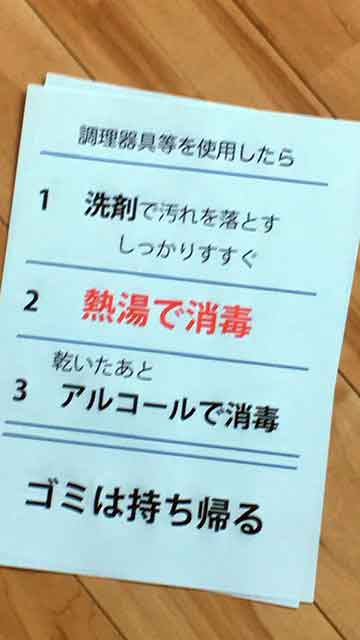 調理器具等を使用したら
1 洗剤で汚れを落とす
しっかりすすぐ
2 熱湯で消毒
乾いたあと
3 アルコールで消毒
ゴミは持ち帰る